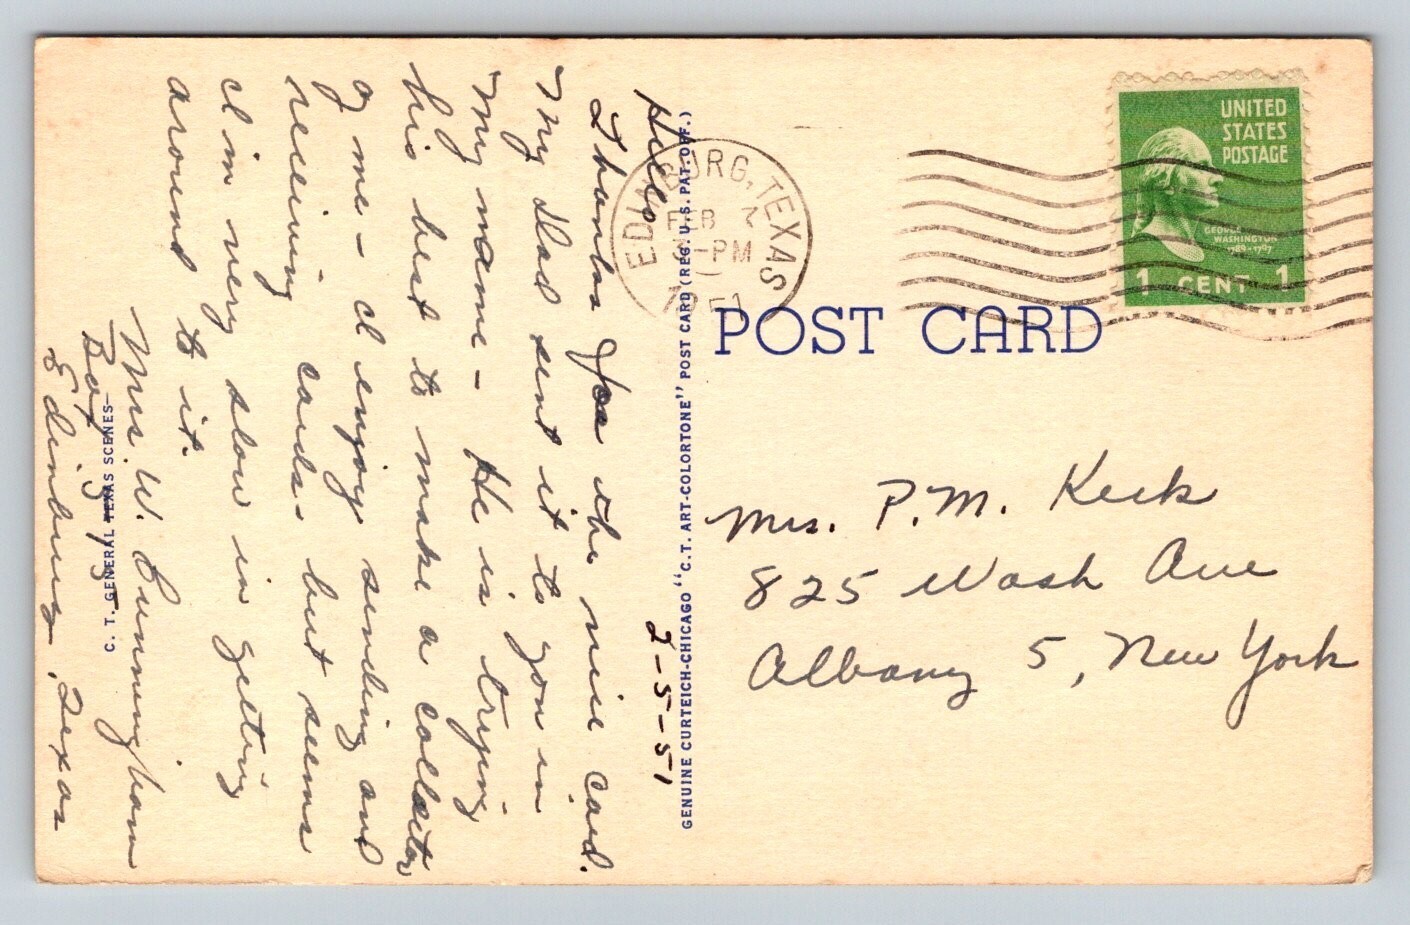 Hello 2-5-51
Thanks for the nice card.
My Dad sent it to you in
my name - He is trying
his best to make a collector
of me - I enjoy sending and
receiving cards. but seems
I'm very slow in getting
around to it.
Mrs. W. Cunningham
Box 313
Edinburg, Texas
C. T. GENERAL TEXAS SCENES
GENUINE CURTEICH-CHICAGO "C.T. ART-COLORTONE" POST CARD (REG. U.S. PAT. OFF.)
EDINBURG, TEXAS
FEB 7
3-PM
1951
UNITED
STATES
POSTAGE
GEORGE
WASHINGTON
1789-1797
1 CENT 1
POST CARD
Mrs. P.M. Keck
825 Wash Ave
Albany 5, New York